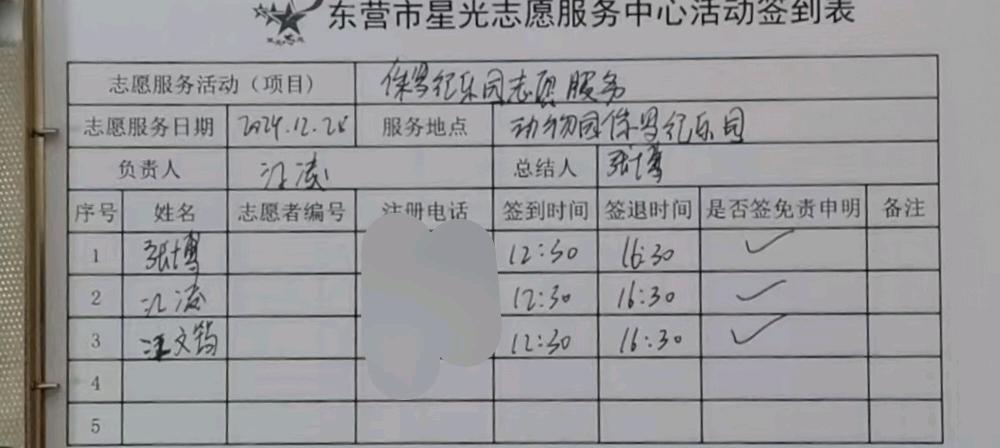 东营市星光志愿服务中心活动签到表
志愿服务活动（项目） 侏罗纪乐园志愿服务
志愿服务日期 2024.12.28 服务地点 动物园侏罗纪乐园
负责人 江涛 总结人 张博
序号 姓名 志愿者编号 注册电话 签到时间 签退时间 是否签免责申明 备注
1 张博 12:30 16:30 ✓
2 江涛 12:30 16:30 ✓
3 汪文 12:30 16:30 ✓
4
5